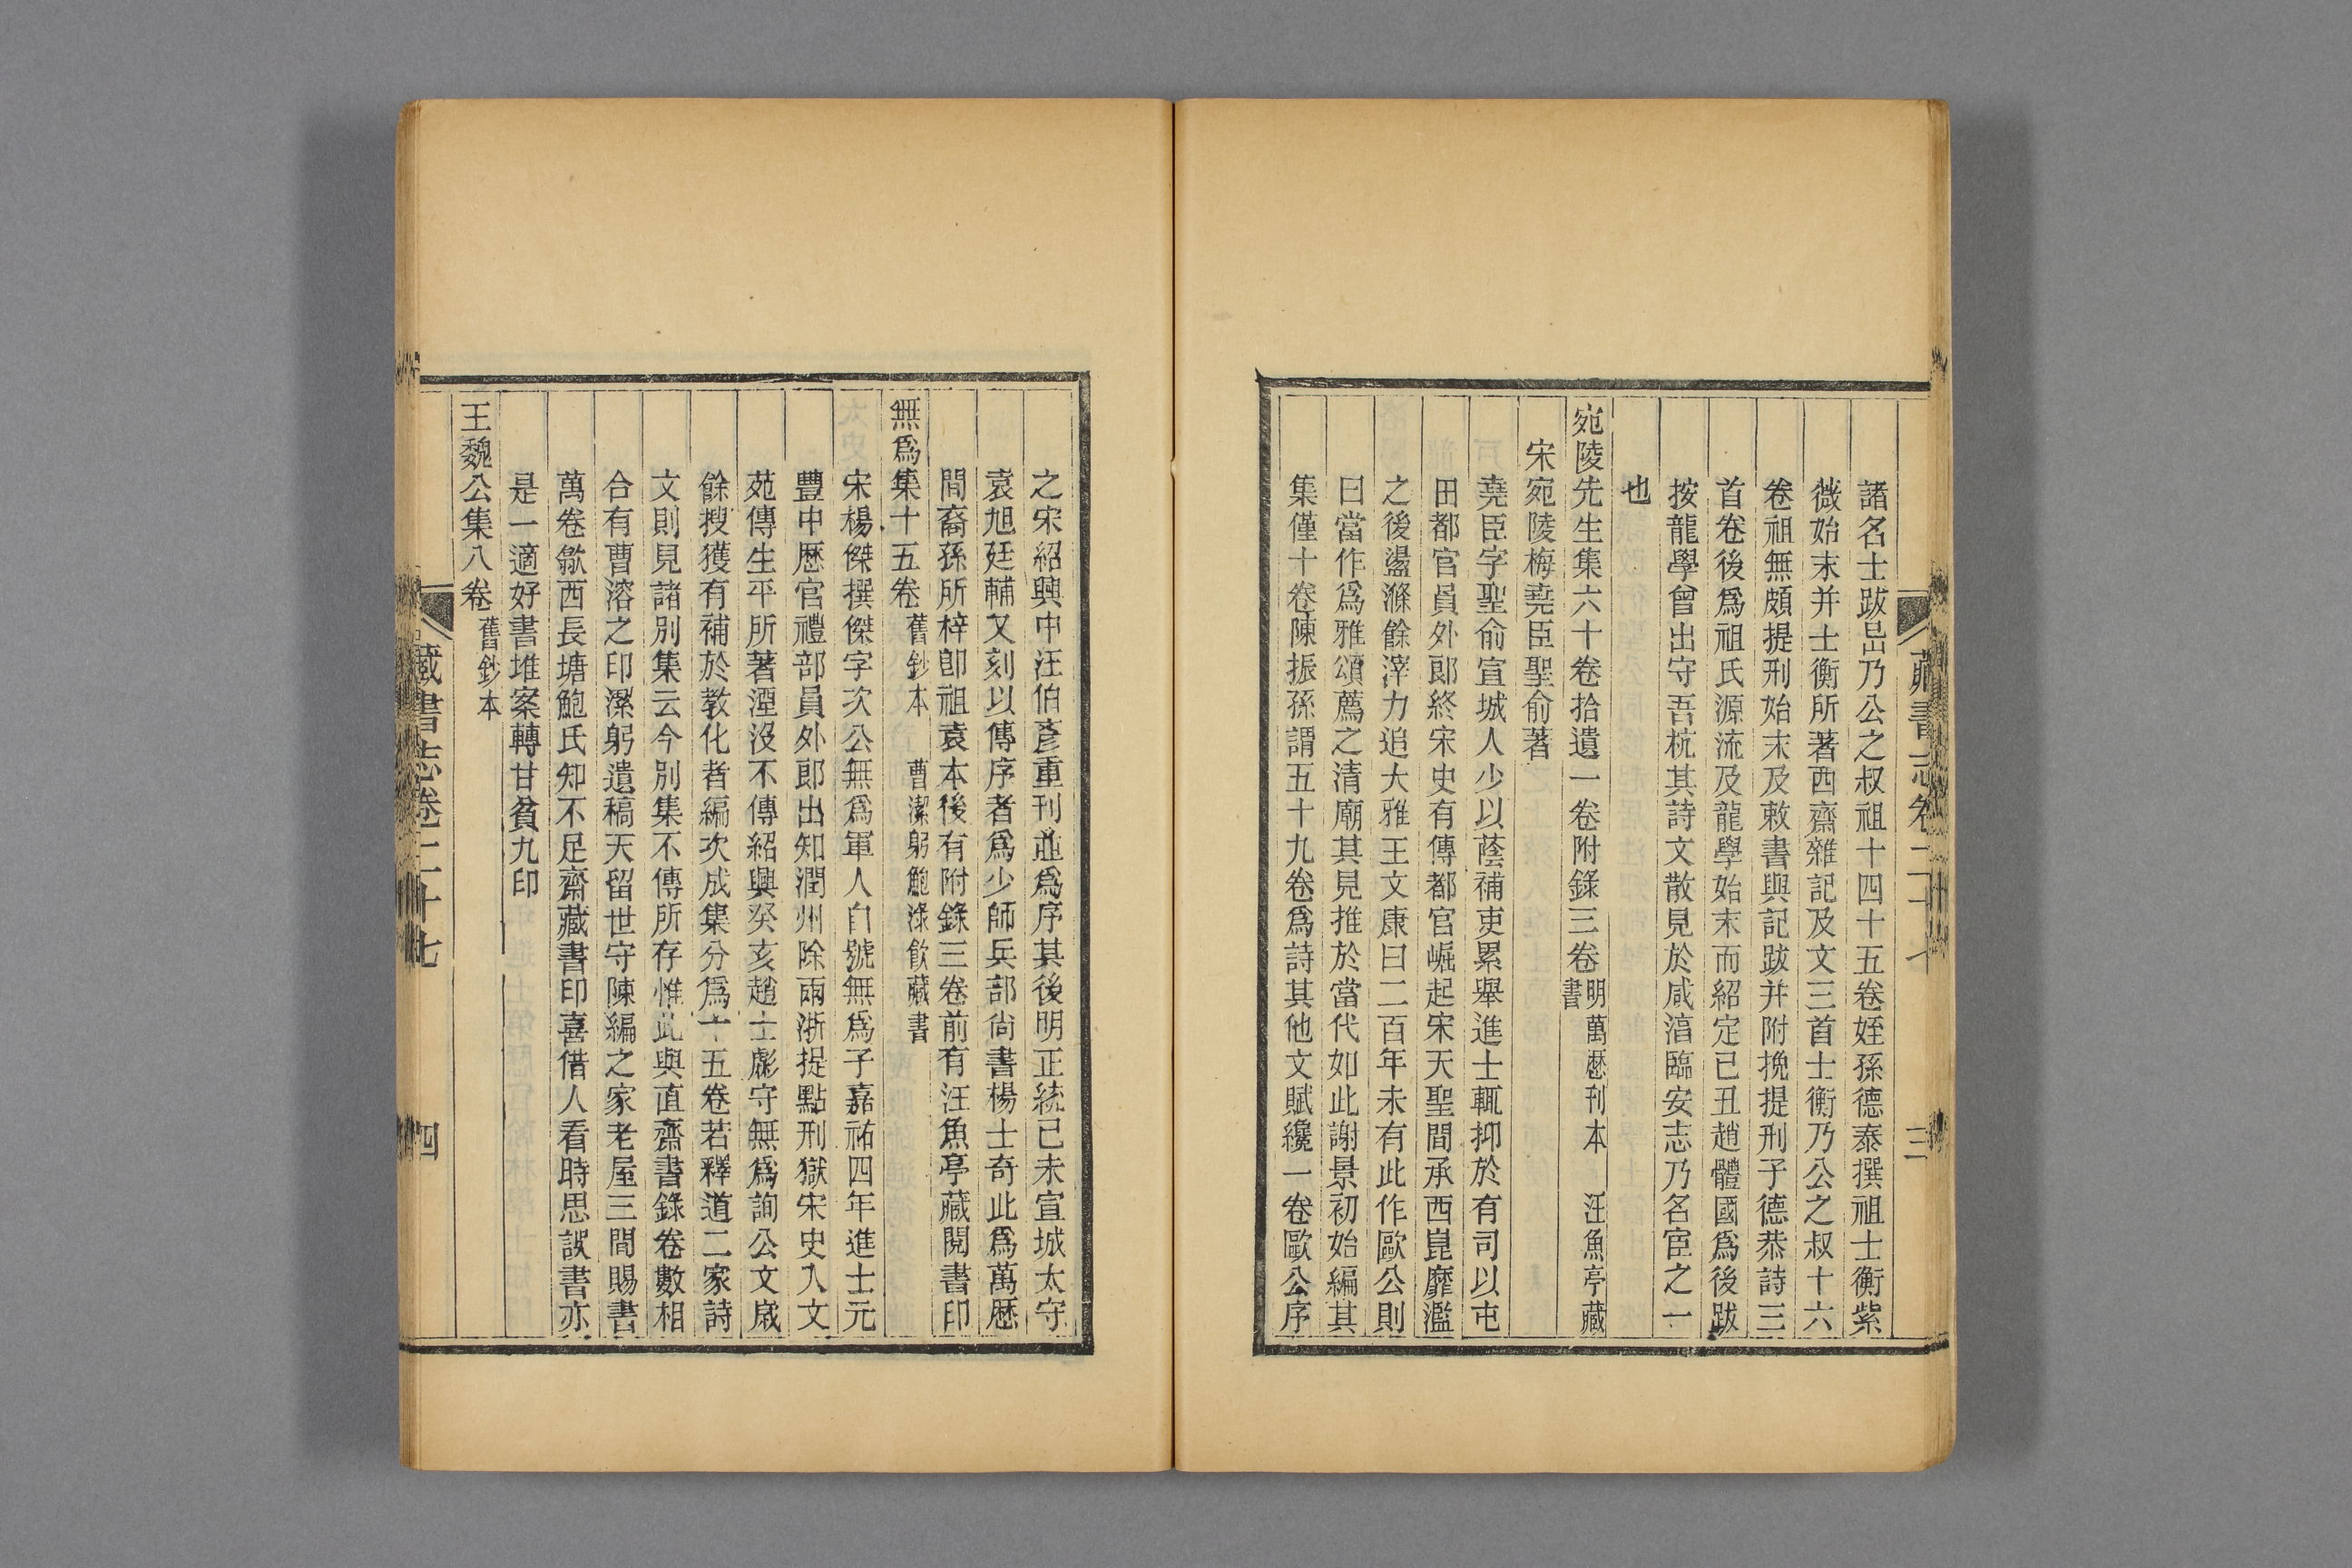 藏書志卷二十七
三
諸名士跋岀乃公之叔祖十四十五卷姪孫德泰撰祖士衡紫
微始末并士衡所著西齋雜記及文三首士衡乃公之叔十六
卷祖無頗提刑始末及敕書與記跋并附挽提刑子德恭詩三
首卷後爲祖氏源流及龍學始末而紹定己丑趙體國爲後跋
按龍學曾出守吾杭其詩文散見於咸淳臨安志乃名宦之一
也
宛陵先生集六十卷拾遺一卷附錄三卷 明萬歷刊本 汪魚亭藏書
宋宛陵梅堯臣聖俞著
堯臣字聖俞宣城人少以蔭補吏累舉進士輒抑於有司以屯
田都官員外郎終宋史有傳都官崛起宋天聖間承西崑靡濫
之後盪滌餘滓力追大雅王文康曰二百年未有此作歐公則
曰當作爲雅頌薦之清廟其見推於當代如此謝景初始編其
集僅十卷陳振孫謂五十九卷爲詩其他文賦纔一卷歐公序
之宋紹興中汪伯彥重刊並爲序其後明正統己未宣城太守
袁旭廷輔又刻以傳序者爲少師兵部尙書楊士奇此爲萬歷
間裔孫所梓卽祖袁本後有附錄三卷前有汪魚亭藏閱書印
無爲集十五卷 舊鈔本 曹潔躬鮑淥飮藏書
宋楊傑撰傑字次公無爲軍人自號無爲子嘉祐四年進士元
豐中歷官禮部員外郎出知潤州除兩浙提點刑獄宋史入文
苑傳生平所著湮沒不傳紹興癸亥趙士彪守無爲詢公文歲
餘搜獲有補於教化者編次成集分爲十五卷若釋道二家詩
文則見諸別集云今別集不傳所存惟此與直齋書錄卷數相
合有曹溶之印潔躬遺稿天留世守陳編之家老屋三間賜書
萬卷歙西長塘鮑氏知不足齋藏書印喜借人看時思誤書亦
是一適好書堆案轉甘貧九印
王魏公集八卷 舊鈔本
藏書志卷二十七
四